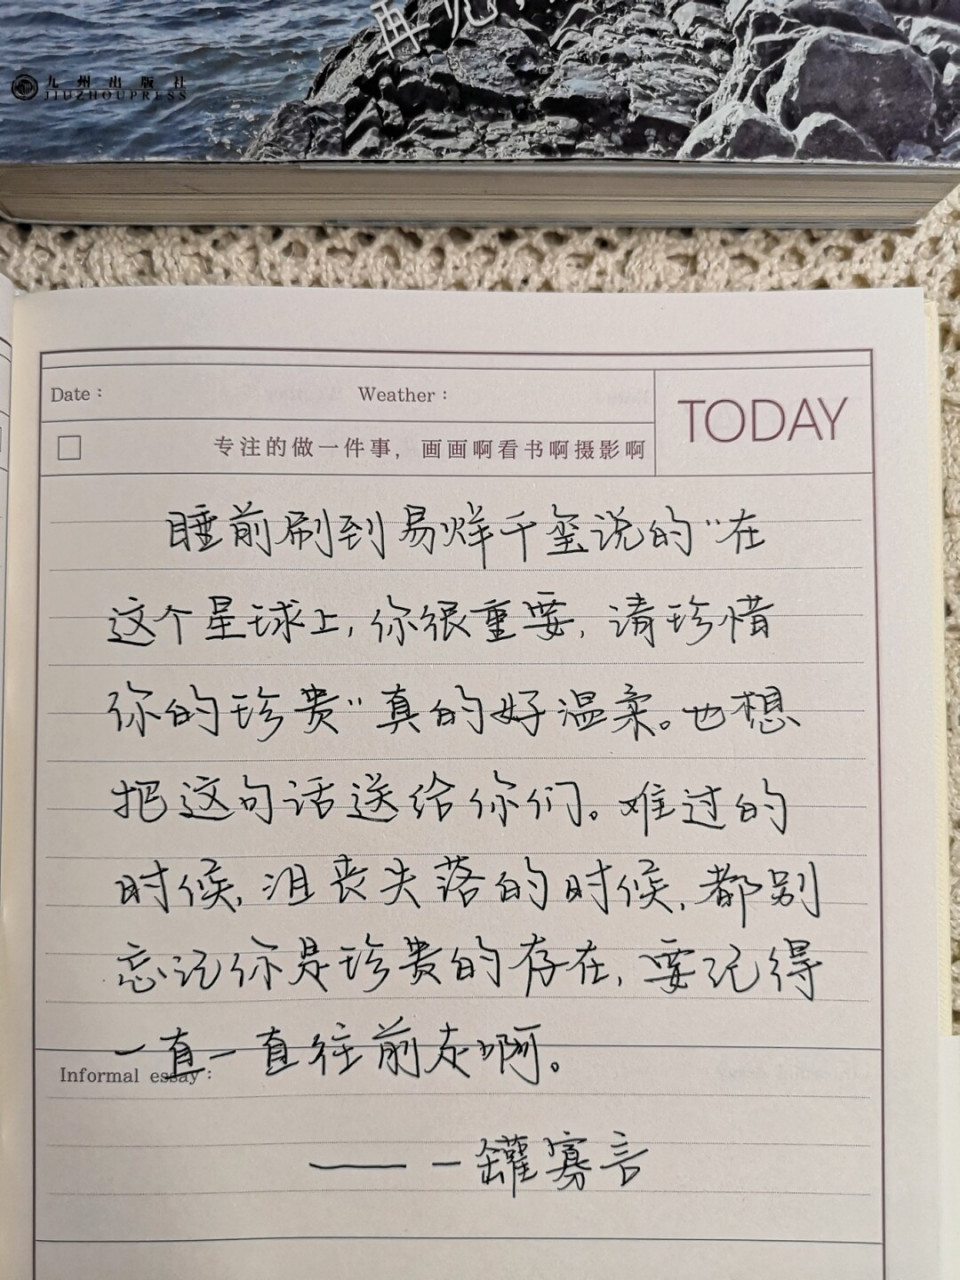 再见
九州出版社
JIUZHOUPRESS
Date：
Weather：
TODAY
专注的做一件事，画画啊看书啊摄影啊
睡前刷到易烊千玺说的“在
这个星球上，你很重要，请珍惜
你的珍贵”真的好温柔。也想
把这句话送给你们。难过的
时候，沮丧失落的时候，都别
忘记你是珍贵的存在，要记得
一直一直往前走啊。
Informal essay：
——一罐寡言